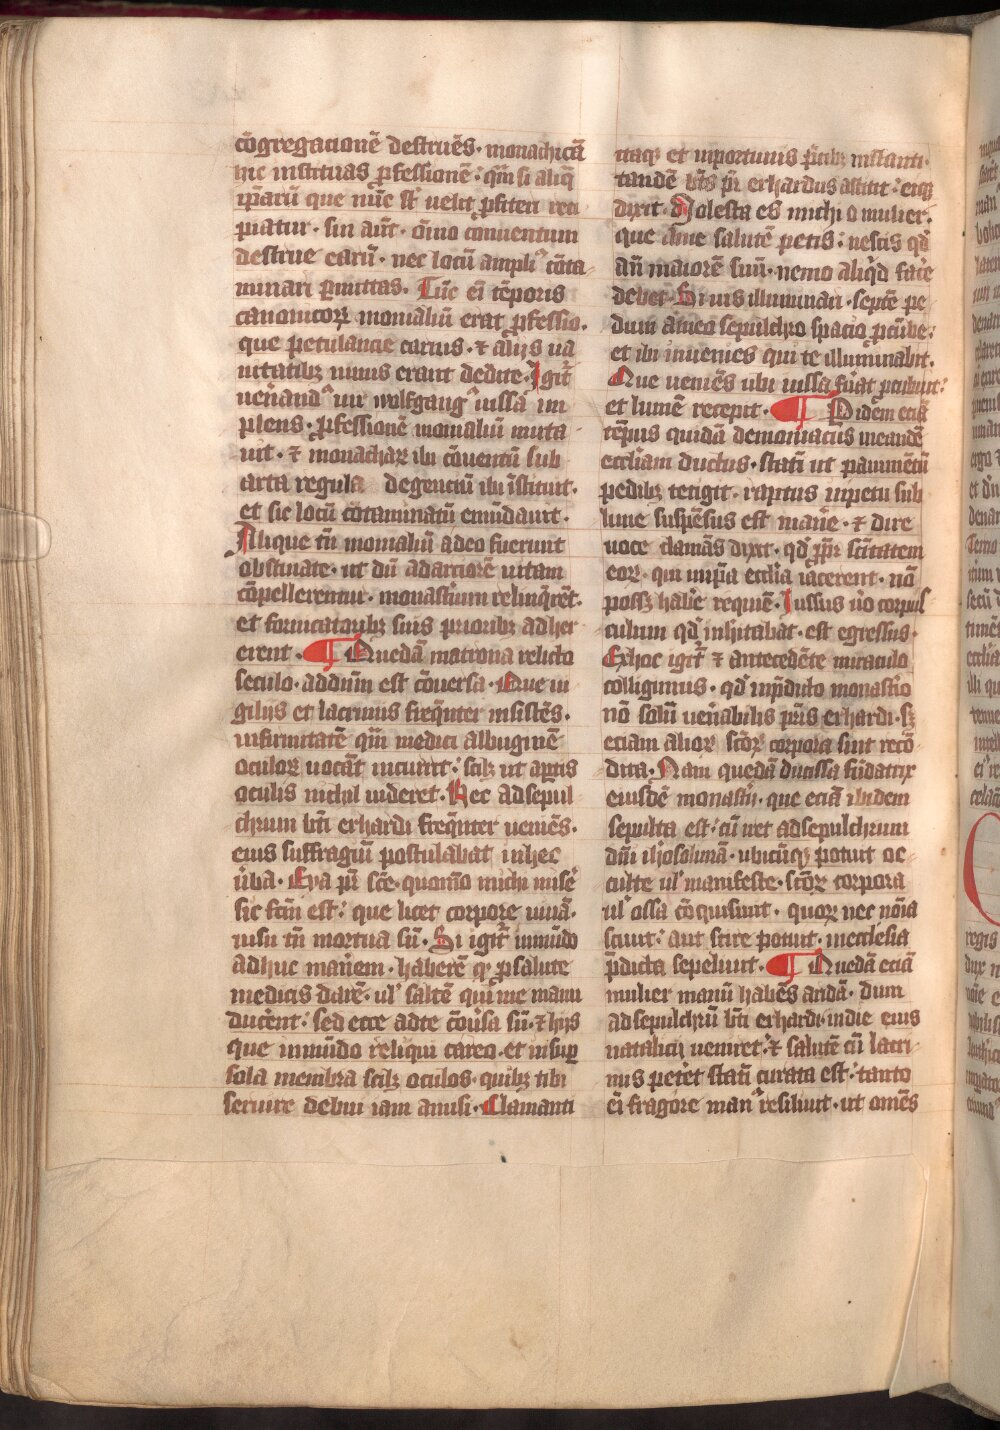 cōgregacionē destruēs· monachicā
hic instituas ꝓfessionē: qm̄ si aliq̄
ip̄arū que nūc st̄ uelit ꝓfiteri reci
piatur· sin aūt· oīno conuentum
destrue earū· nec locū ampliꝰ cōta
minari ꝑmittas· Tūc ei tēporis
canonicoꝝ monialiū erat ꝓfessio·
que petulancie carnis· ⁊ alijs ua
nitatibꝫ nimis erant dedite· Igit᷑
uen̄andꝰ uir wolfgangꝰ iussa im
plens· ꝓfessionē monialiū muta
uit· ⁊ monachaꝝ ibi cōuentū sub
arta regula degenciū ibi īstituit·
et sic locū cōtaminatū emūdauit·
Alique tn̄ monialiū adeo fuerunt
obstinate· ut dū ad arciorē uitam
cōpellerentur· monast̄ium relinq̄rēt·
et fornicatoribꝫ suis prioribꝫ adhe
rerent· ¶ Quedā matrona relicto
seculo· ad dūm est cōuersa· Que ui
gilijs et lacrimis freq̄nter insistēs·
infirmitatē qm̄ medici albuginē
oculoꝝ uocāt incurrit: scilꝫ ut aꝑtis
oculis nichil uideret· Hec ad sepul
chrum bt̄i erhardi freq̄nter ueniēs·
eius suffragiū postulabat in hec
ūba· Eya pr̄ sc̄e· quom̄o michi mis̄e
sic fc̄m est: que licet corpore uiuā·
uisu tn̄ mortua sū· Si igit᷑ in mūdo
adhuc man̄em· haberē qꝫ ꝓ salute
medicis darē· ul' saltē qui me manu
ducer̄ent: sed ecce ad te cōūsa sū· ⁊ hijs
que in mūdo reliqui careo· et insuꝑ
sola membra scilꝫ oculos· quibꝫ tibi
seruire debui iam amisi· Clamanti
itaqꝫ et inportunis p̄cibꝫ instanti·
tandē bt̄s pr̄ erhardus astitit: eiqꝫ
dixit· Molesta es michi o mulier·
que a me salutē petis: nescis qd̄
an̄ maiorē suū· nemo aliq̄d fac̄e
debet· Si uis illuminari· septē pe
dum a meo sepulchro spacio ꝓcūbe:
et ibi inuenies qui te illuminabit·
Que ueniēs ubi iussa fūat ꝓcubuit:
et lumē recepit· ¶ Pridem eciā
tēpus quidā demoniacus in eandē
eccl̄iam ductus· statī ut pauimētū
pedibꝫ tetigit· raptus inpetu sub
lime suspēsus est man̄e· ⁊ dire
uoce clamās dixit· qd̄ ꝓpt̄ sc̄itatem
eoꝝ· qui in ip̄a eccl̄ia iacerent· nō
possꝫ hab̄e requiē· Iussus ūo corpus
culum qd̄ inhītabat· est egressus·
Ex hoc igit᷑ ⁊ antecedēte miraculo
colligimus· qd̄ in p̄dicto monast̄io
nō solū uen̄abilis pr̄is erhardi· sꝫ
eciam alioꝝ sc̄oꝝ corpora sint recō
dita· Nam quedā ducissa fūdatrix
eiusdē monast̄ij· que eciā ibidem
sepulta est: cū iret ad sepulchrum
dm̄i ih'osolimā· ubicūqꝫ potuit oc
culte ul' manifeste· sc̄oꝝ corpora
ul' ossa cōquisiuit· quoꝝ nec nōia
sciuit: aut scire potuit· in ecclesia
p̄dicta sepeliuit· ¶ Quedā eciā
mulier manū habēs aridā· dum
ad sepulchrū bt̄i erhardi· in die eius
natalicij uenir̄et· ⁊ salutē cū lacri
mis petēt statī curata est: tanto
ei fragore manꝰ resiliuit· ut omēs